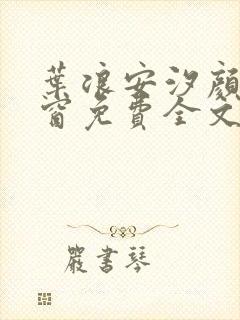 葉浪安汐顏
窗免費全文
嚴書琴